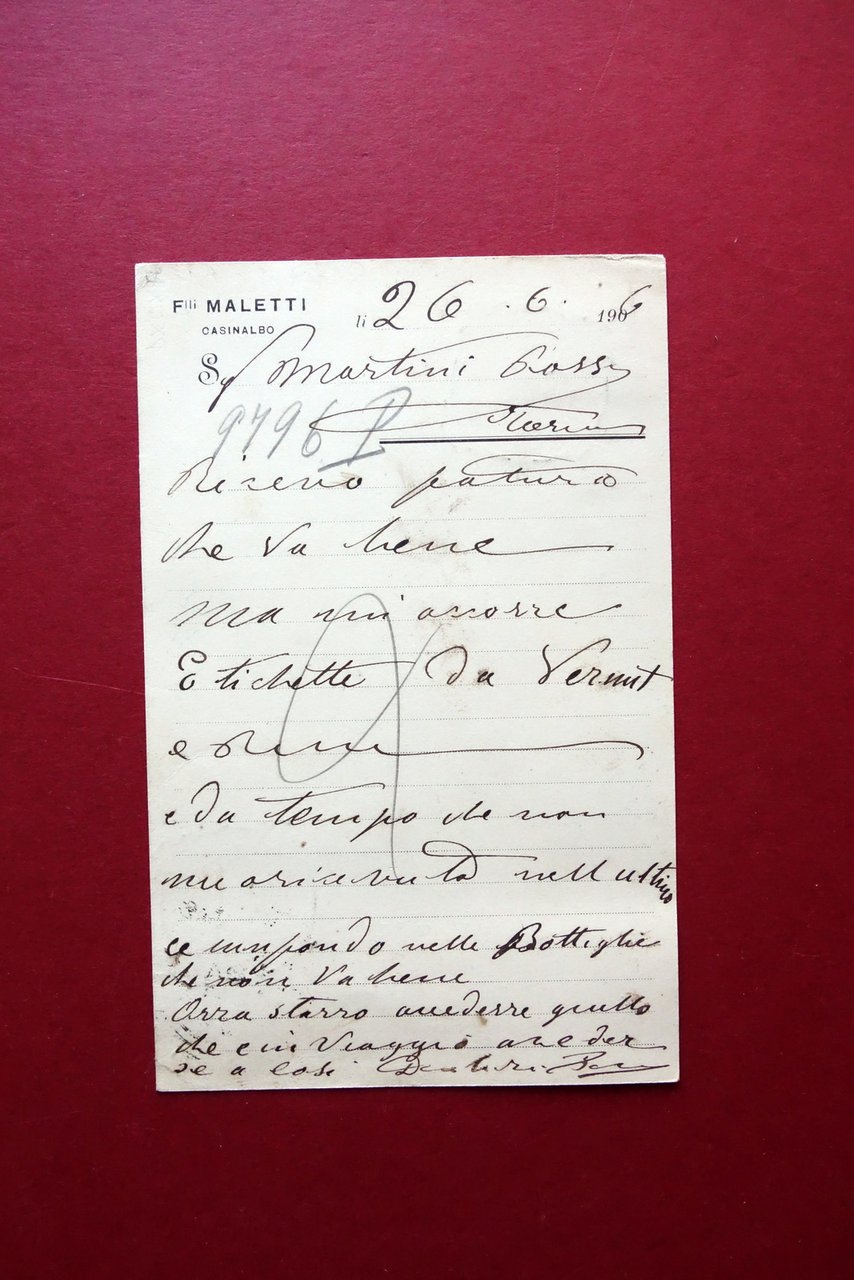 Flli MALETTI
CASINALBO
li 26 . 6 . 1906
Sg Martini Rossi
Torino
9796
Ricevo fatura
che va bene
Ma mi ocorre
Etichette da Vermut
e
e da tempo che non
ne o ricevuto nell ultino
ce un fondo nelle Bottiglie
che non va bene
Orra starro avederre quello
che e in Viaggio a veder
se a cosi